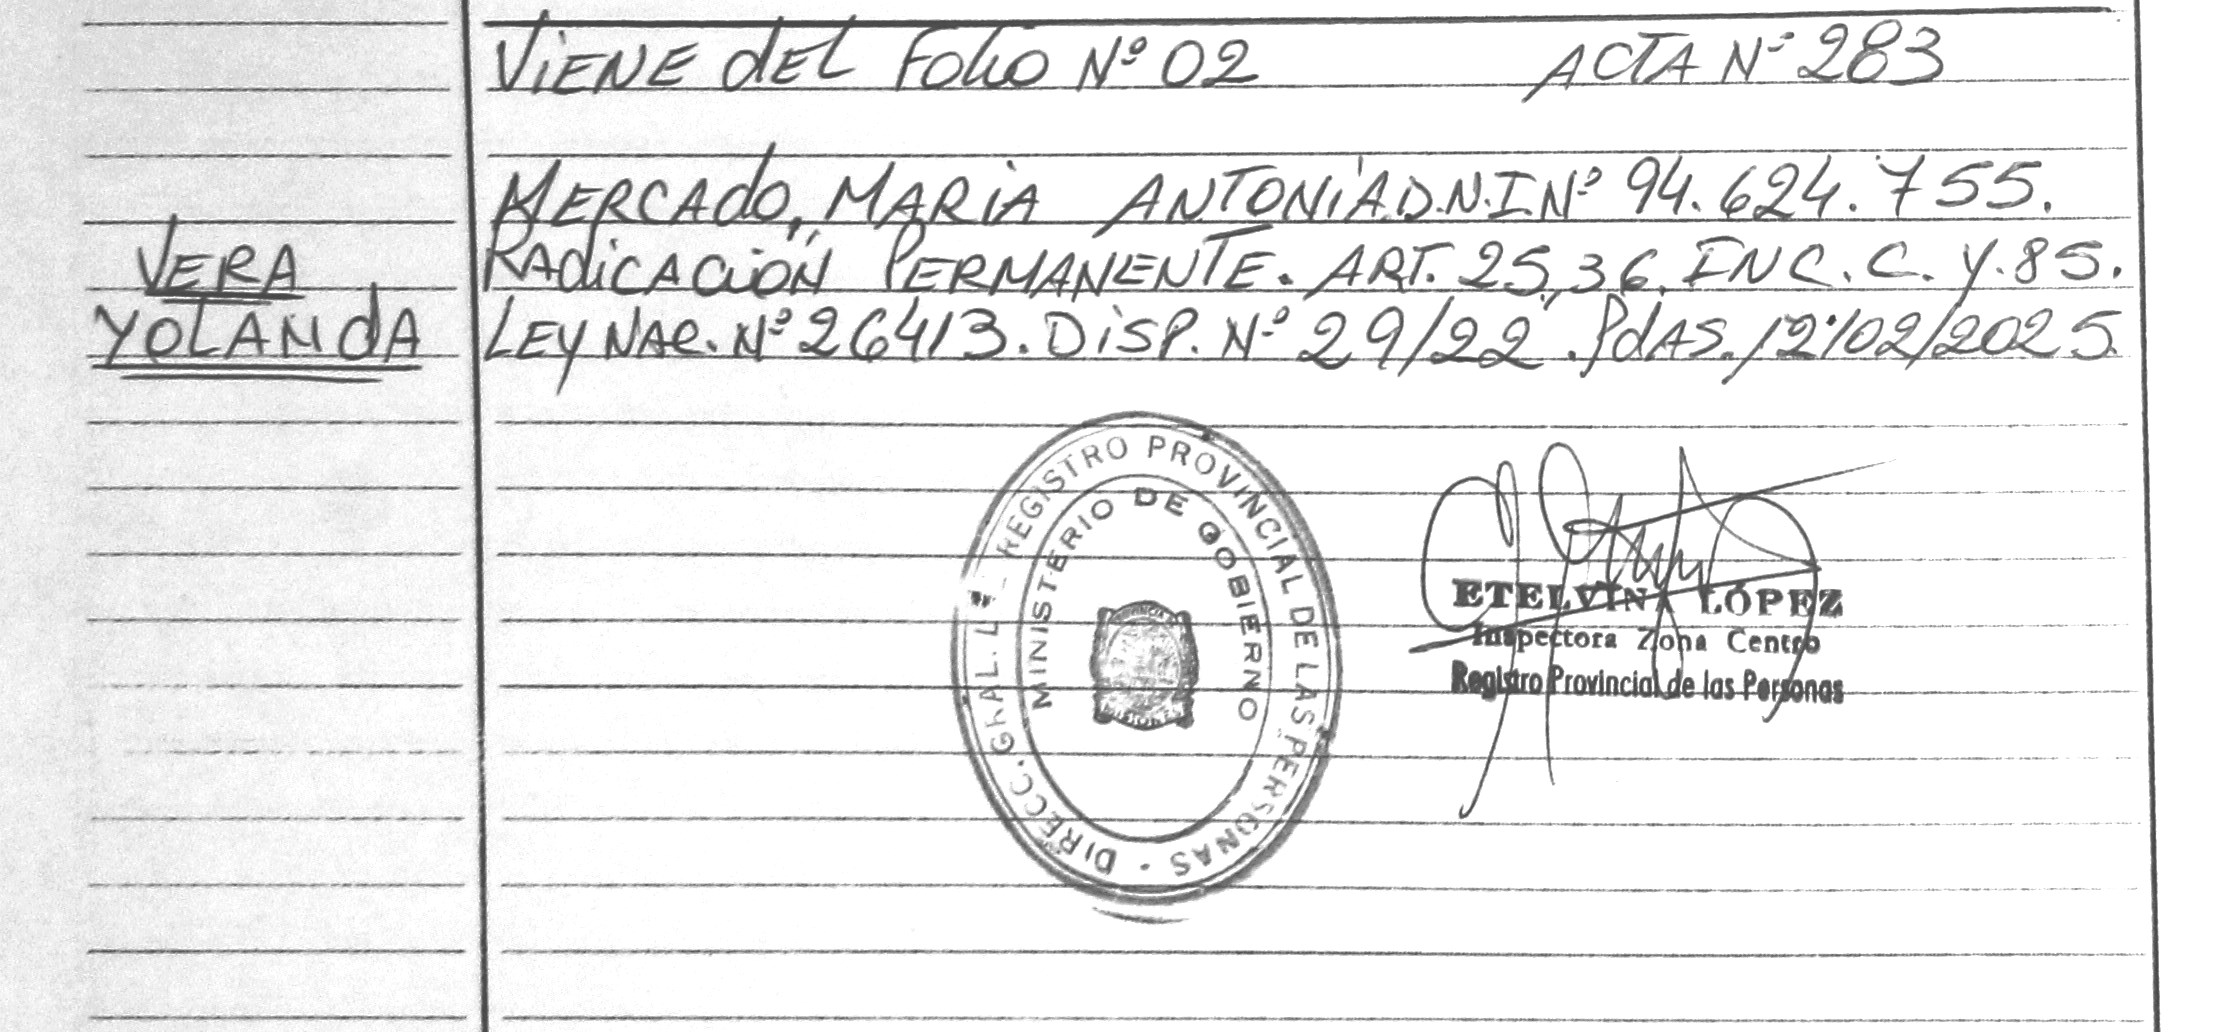 ViENE dEL Folio Nº 02 ACTA Nº 283
MERCAdo, MARiA ANTONiA D.N.I Nº 94.624.755.
VERA
YOLANdA
RAdiCACiÓN PERMANENTE. ART. 25,36, INC. C. Y. 85.
LEY NAC. Nº 26413. DiSP. Nº 29/22. PdAS. 12/02/2025.
REGISTRO PROVINCIAL DE LAS PERSONAS - DIRECC. GRAL.
MINISTERIO DE GOBIERNO
PROVINCIA
MISIONES
ETELVINA LÓPEZ
Inspectora Zona Centro
Registro Provincial de las Personas